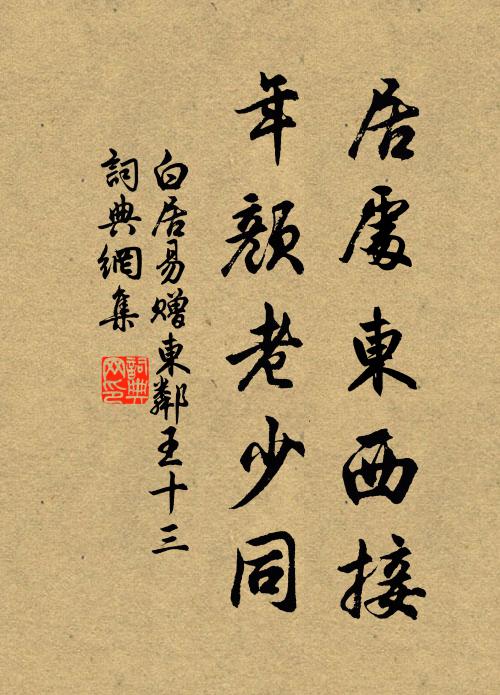 居處東西接
年顏老少同
白居易贈東鄰王十三
詞典網集
詞典網印